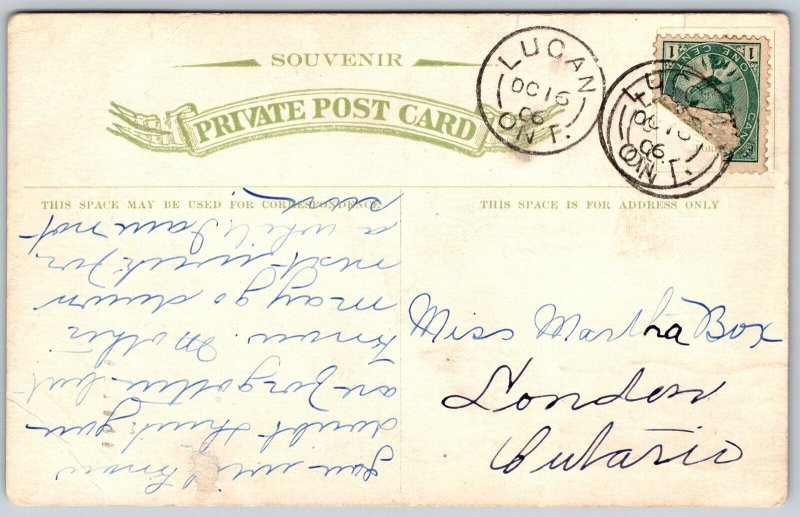 SOUVENIR
PRIVATE POST CARD
LUCAN
OC 16
06
ONT.
LUC
OC 16
06
ONT.
1 ONE CENT 1
THIS SPACE MAY BE USED FOR CORRESPONDENCE
THIS SPACE IS FOR ADDRESS ONLY
you will know
doubt think you
are forgotten but
know. Mother
may go down
next week for
a while I am not
sure
Miss Martha Box
London
Ontario